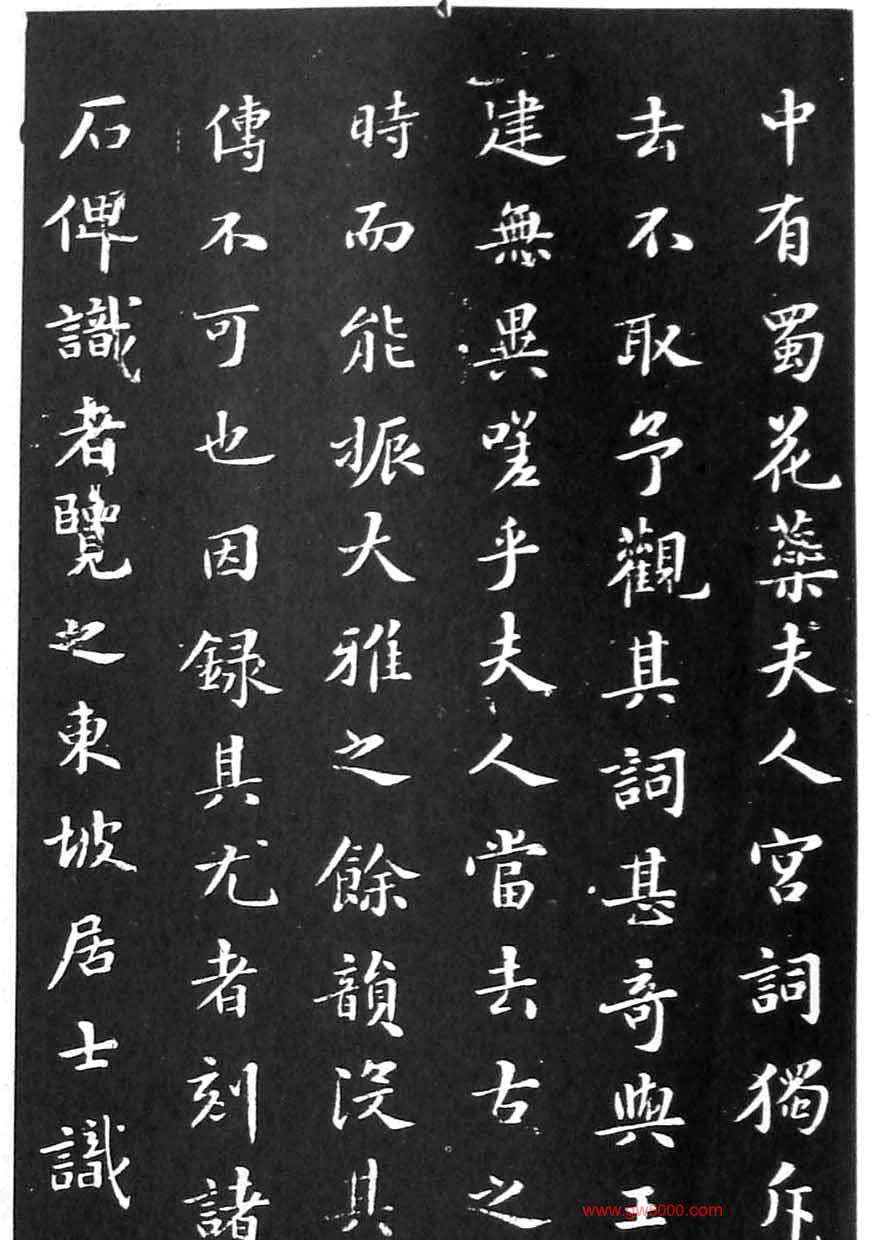 中有蜀花蘂夫人宮詞獨斥
去不取予觀其詞甚奇與王
建無異嗟乎夫人當去古之
時而能振大雅之餘韻没其
傳不可也因録其尤者刻諸
石俾識者覽之東坡居士識
www.gw5000.com